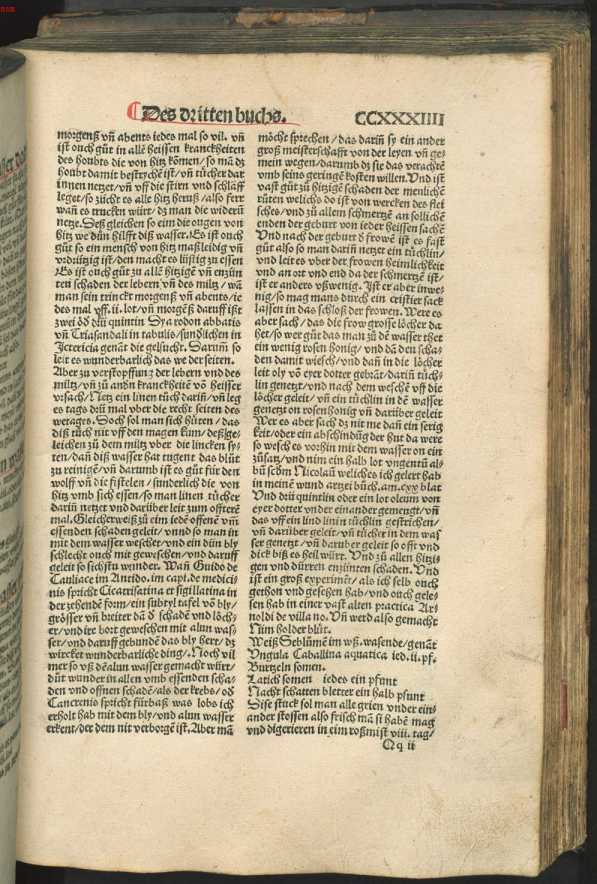 ¶ Des dritten buchs. CCXXXIIII
morgenß vñ abents iedes mal so vil. vñ
ist ouch gůt in allē heissen kranckheiten
des houbts die von hitz kōmen/so mā dz
houbt damit bestrychē ist/vñ tůcher dar
innen netzet/vñ vff die stirn vnd schläff
leget/so zücht es alle hitz heruß/also ferr
wañ es trucken würt/dz man die widerū
netze. Deß gleichen so eim die ougen von
hitz we důn hilfft diß wasser. Es ist ouch
gůt so ein mensch von hitz maßleidig vñ
vrdrützig ist/den macht es lüstig zu essen
Es ist ouch gůt zu allē hitzigē vñ enzün
ten schaden der lebern vñ des miltz/wā
man sein trinckt morgenß vñ abents/ie
des mal vff.ii.lot/vñ morgēß daruff ißt
zwei oď drü quintin Dya rodon abbatis
vñ Triasandali in tabulis/sundlichen in
Ictericia genāt die gelsucht. Darum so
leit es wunderbarlich das we der seiten.
Aber zu verstopffung der lebern vnd des
miltz/vñ zů andn kranckheitē võ heisser
vrsach/Netz ein linen tůch darin/vñ leg
es tags drü mal vber die recht seiten des
wetages. Doch sol man sich hůten/das
diß tůch nit vff den magen kum/deßlge-
leichen zu dem miltz vber die lincken sy-
ten/dañ diß wasser hat tugent das blůt
zu reinigē/vñ darumb ist es gůt für den
wolff vñ die fistelen/sunderlich die von
hitz vmb sich essen/so man linen tůcher
darin netzet vnd darüber leit zum offterē
mal. Gleicherweiß zů eim iedē offenē vm̄
essenden schaden geleit/vnnd so man in
mit dem wasser weschet/vnd ein dün bly
schlecht ouch mit geweschen/vnd daruff
geleit so sichstu wunder. Wañ Guido de
Cauliace im Antido. im capt. de medici-
nis spricht Cicatrisatina er sigillatina in
der zehendē form/ein subtyl tafel võ bly/
grösser vñ breiter dā ď schadē vnd löch-
er/vnd irr bort geweschen mit alun was-
ser/vnd daruff gebundē das bly herr/dz
wircket wunderbarliche ding. Noch vil
mer so vß dē alun wasser gemacht würt/
dūt wunder in allen vmb essenden scha-
den vnd offnen schadē/als der krebs/oď
Cancrenis spricht fürbaß was lobs ich
erholt hab mit dem bly/vnd alun wasser
erkent/der dem nit verborgē ist. Aber mā
möcht sprechen/das darin sy ein ander
groß meisterschafft von der leyen vñ ge-
mein wegen/darumb dz sie das verachtē
vmb seins geringē kosten willen. Vnd ist
vast gůt zů hitzigē schaden der menlichē
růten welichs do ist von wercken des flei
sches/vnd zů allem schmertzē an sollichē
enden der geburt von ieder heissen sachē
Vnd nach der geburt ď frowē ist es fast
gůt also so man darin netzet ein tůchlin/
vnd leit es vber der frowen heimlichkeit
vnd an ort vnd end da der schmertzē ist/
ist er anders vßwenig. Ist er aber inwe-
nig/so mag mans durch ein cristier sack
lassen in das schloß der frowen. Were es
aber sach/das die frow grosse löcher da
het/so wer gůt das man zů dē wasser thet
ein wenig rosen honig/vnd dā den scha-
den damit wiesch/vnd dañ in die löcher
leit oly võ eyer dotter gebrāt/darin tůch-
lin genetzt/vnd nach dem weschē vff die
löcher geleit/vñ ein tůchlin in dē wasser
genetzt on rosen honig vñ darüber geleit
Wer es aber sach dz nit me dañ ein serig
keit/oder ein abschindūg der hut da were
so wesch es vorhin mit dem wasser on ein
zůsatz/vnd nim ein halb lot vngentū al-
bū sebm̄ Nicolaū weliches ich gelert hab
in meinē wund artzei bůch. am. cxx blat
Vnd drü quintlin oder ein lot oleum von
eyer dotter vnder einander gemengt/vñ
das vff ein lind linin tůchlin gestrichen/
vñ darüber geleit/vñ tůcher in dem was
ser genetzt/vñ darüber geleit so offt vnd
dick biß es heil würt. Vnd zů allen hitzi-
gen vnd dürren enzünten schaden. Vnd
ist ein groß experimēt/als ich selb ouch
gethon vnd gesehen hab/vnd ouch gele-
sen hab in einer vast alten practica Ar-
noldi de villa no. Vñ werd also gemacht
Nim holder blůt.
Weiß Seblůmē im wß.wasende/genāt
Vngula Caballina aquatica ied.ii.pf.
Burtzeln somen.
Latich somen iedes ein pfunt
Nacht schatten bletter ein halb pfunt
Dise stuck sol man alle grien vnder ein-
ander stossen also frisch mā si habē mag
vnd digerieren in eim roßmist viii. tag/
Qq ii